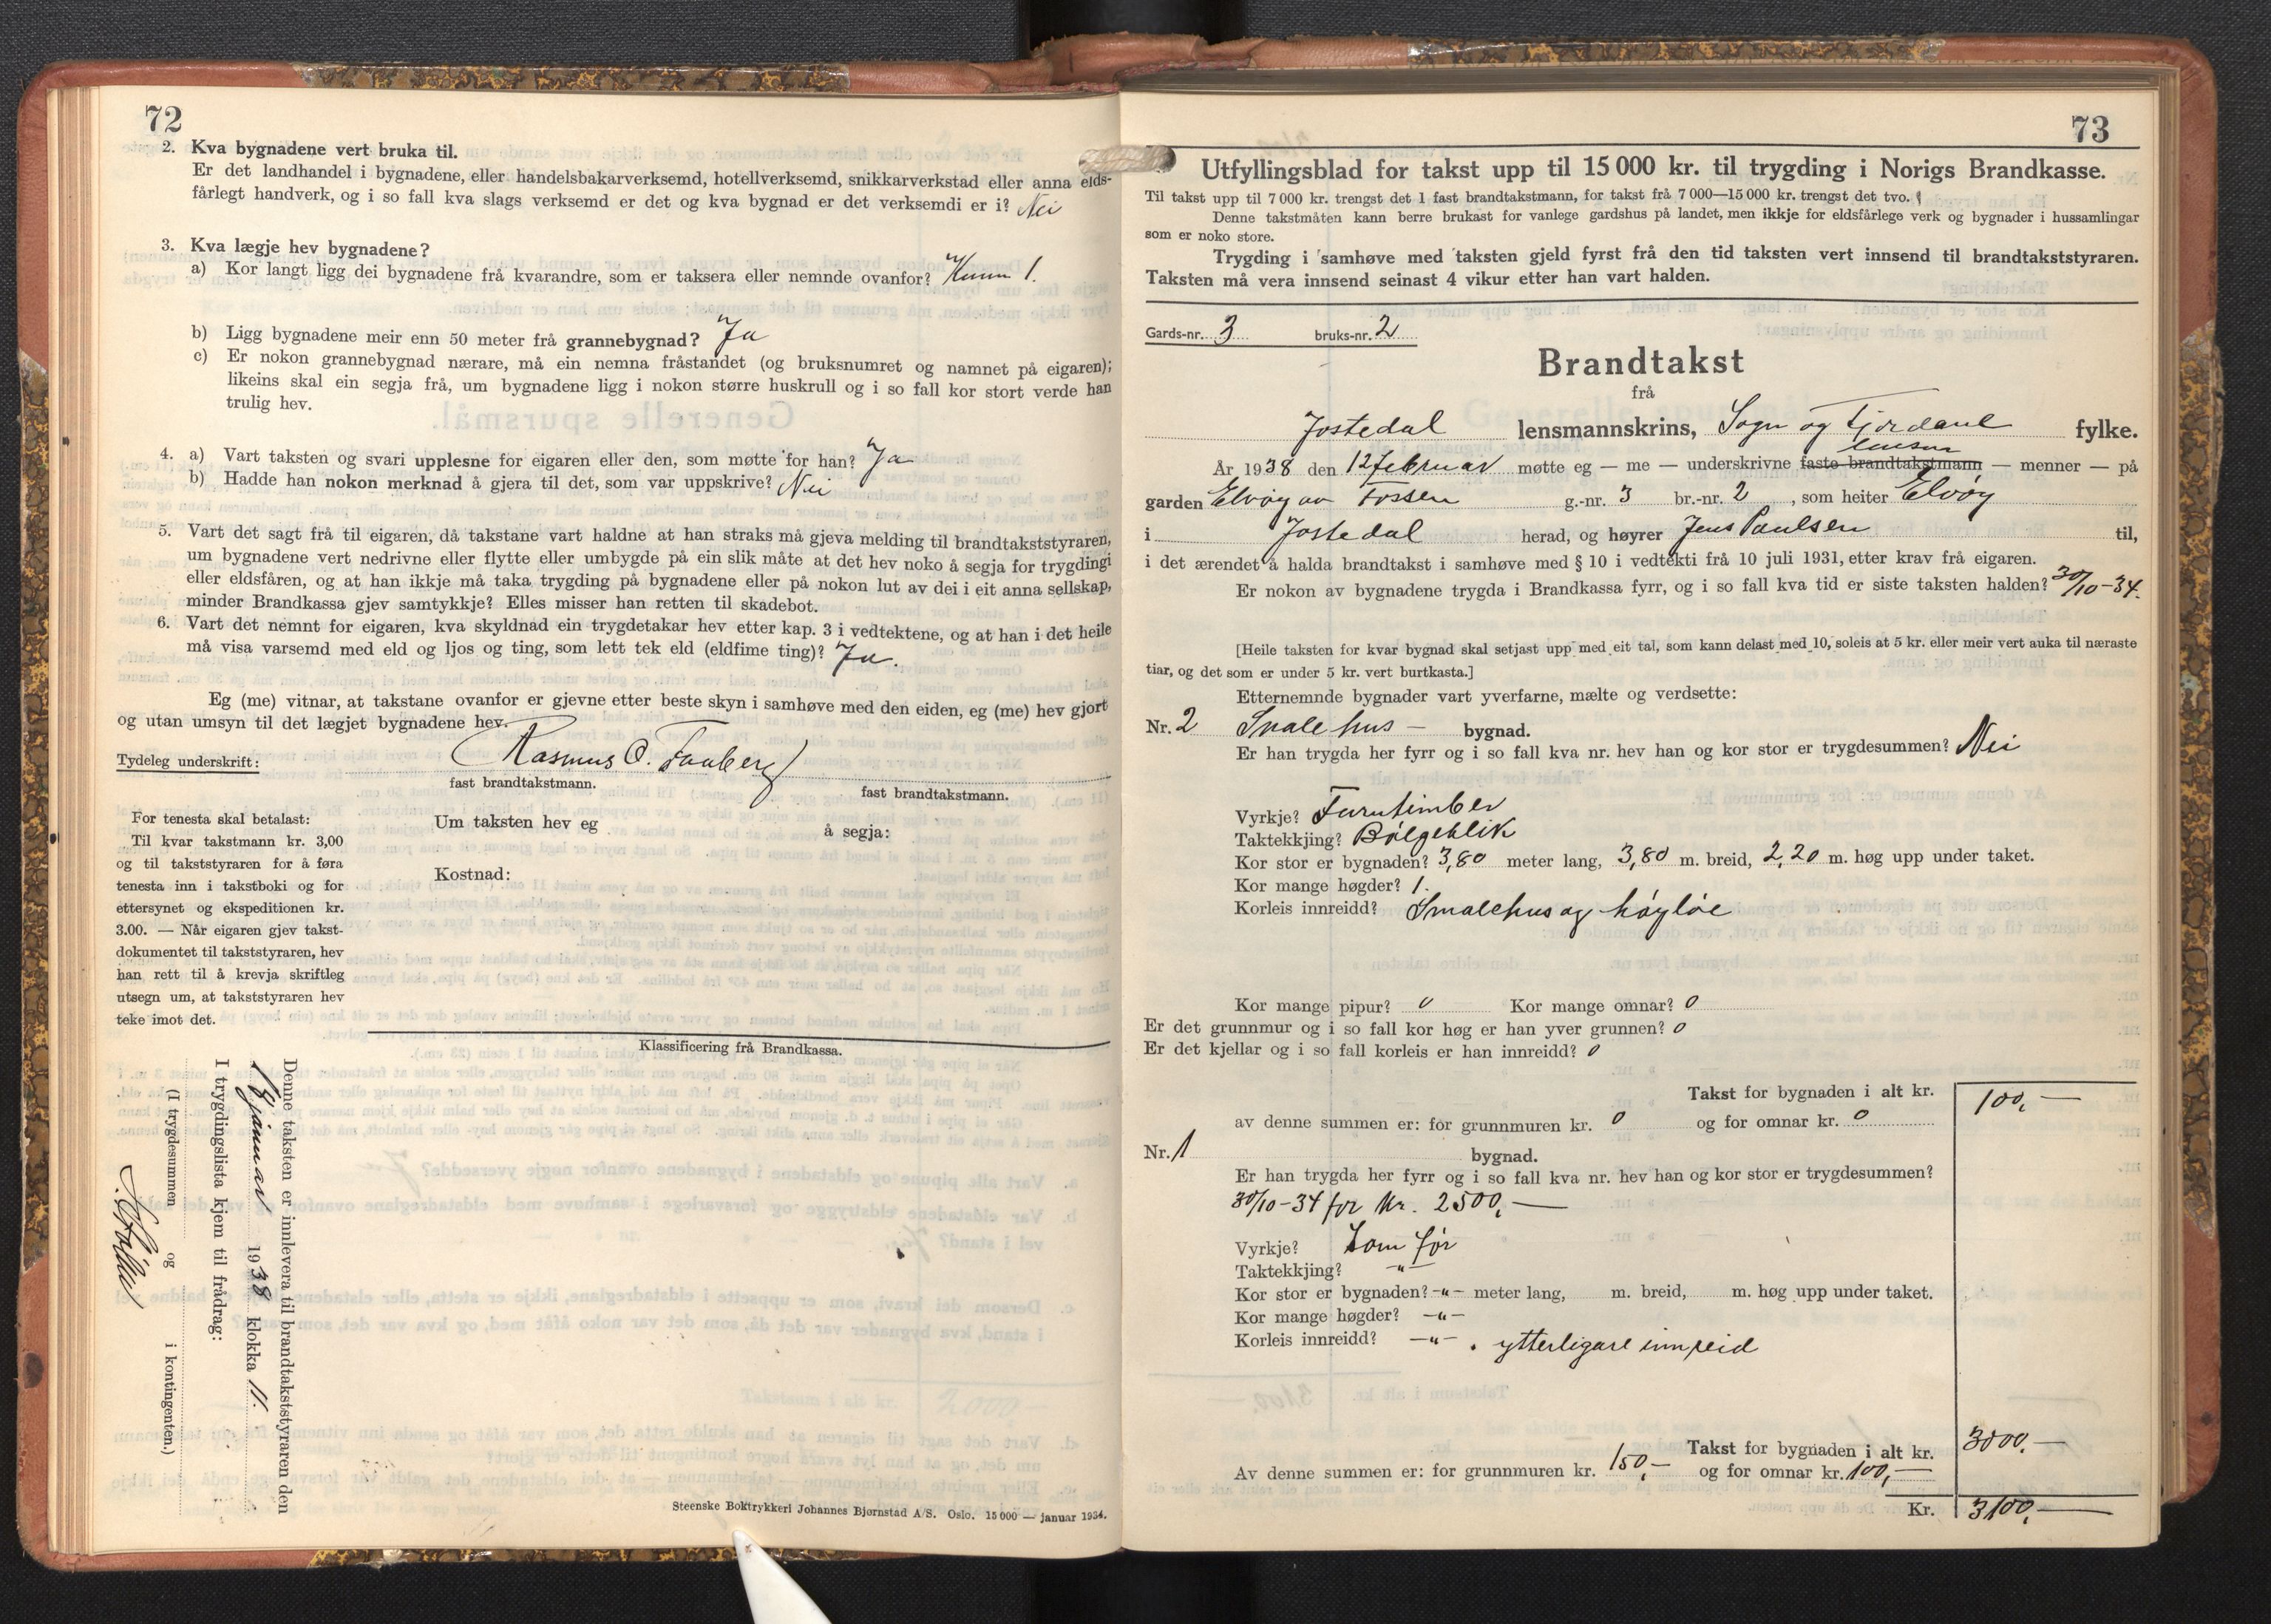 72
2. Kva bygnadene vert bruka til.
Er det landhandel i bygnadene, eller handelsbakarverksemd, hotellverksemd, snikkarverkstad eller anna elds-
fårlegt handverk, og i so fall kva slags verksemd er det og kva bygnad er det verksemdi er i? Nei
3. Kva lægje hev bygnadene?
a) Kor langt ligg dei bygnadene frå kvarandre, som er taksera eller nemnde ovanfor? Kunn 1.
b) Ligg bygnadene meir enn 50 meter frå grannebygnad? Ja
c) Er nokon grannebygnad nærare, må ein nemna fråstandet (og bruksnumret og namnet på eigaren);
likeins skal ein segja frå, um bygnadene ligg i nokon større huskrull og i so fall kor stort verde han
trulig hev.
4. a) Vart taksten og svari upplesne for eigaren eller den, som møtte for han? Ja
b) Hadde han nokon merknad å gjera til det, som var uppskrive? Nei
5. Vart det sagt frå til eigaren, då takstane vart haldne at han straks må gjeva melding til brandtakststyraren,
um bygnadene vert nedrivne eller flytte eller umbygde på ein slik måte at det hev noko å segja for trygdingi
eller eldsfåren, og at han ikkje må taka trygding på bygnadene eller på nokon lut av dei i eit anna sellskap,
minder Brandkassa gjev samtykkje? Elles misser han retten til skadebot.
6. Vart det nemnt for eigaren, kva skyldnad ein trygdetakar hev etter kap. 3 i vedtektene, og at han i det heile
må visa varsemd med eld og ljos og ting, som lett tek eld (eldfime ting)? Ja.
Eg (me) vitnar, at takstane ovanfor er gjevne etter beste skyn i samhøve med den eiden, eg (me) hev gjort
og utan umsyn til det lægjet bygnadene hev.
Tydeleg underskrift: Rasmus O. Faaberg
fast brandtakstmann. fast brandtakstmann.
For tenesta skal betalast:
Til kvar takstmann kr. 3,00
og til takststyraren for å føra
tenesta inn i takstboki og for
ettersynet og ekspeditionen kr.
3.00. — Når eigaren gjev takst-
dokumentet til takststyraren, hev
han rett til å krevja skriftleg
utsegn um, at takststyraren hev
teke imot det.
Um taksten hev eg å segja:
Kostnad:
Klassificering frå Brandkassa.
Denne taksten er innlevera til brandtakststyraren den
januar 1938 klokka 11.
I trygdingslista kjem til frådrag:
(I trygdesummen og i kontingenten.)
Steenske Boktrykkeri Johannes Bjørnstad A/S. Oslo. 15 000 — januar 1934.
73
Utfyllingsblad for takst upp til 15 000 kr. til trygding i Norigs Brandkasse.
Til takst upp til 7 000 kr. trengst det 1 fast brandtakstmann, for takst frå 7 000—15 000 kr. trengst det tvo.
Denne takstmåten kann berre brukast for vanlege gardshus på landet, men ikkje for eldsfårlege verk og bygnader i hussamlingar
som er noko store.
Trygding i samhøve med taksten gjeld fyrst frå den tid taksten vert innsend til brandtakststyraren.
Taksten må vera innsend seinast 4 vikur etter han vart halden.
Gards-nr. 3 bruks-nr. 2
Brandtakst
frå
Jostedal lensmannskrins, Sogn og Fjordane fylke.
lensm
År 1938 den 12 februar møtte eg — me — underskrivne faste brandtakstmann — menner — på
garden Elvøy av Fossen g.-nr. 3 br.-nr. 2, som heiter Elvøy
i Jostedal herad, og høyrer Jens Paulsen til,
i det ærendet å halda brandtakst i samhøve med § 10 i vedtekti frå 10 juli 1931, etter krav frå eigaren.
Er nokon av bygnadene trygda i Brandkassa fyrr, og i so fall kva tid er siste taksten halden? 30/10-34.
[Heile taksten for kvar bygnad skal setjast upp med eit tal, som kann delast med 10, soleis at 5 kr. eller meir vert auka til næraste
tiar, og det som er under 5 kr. vert burtkasta.]
Etternemnde bygnader vart yverfarne, mælte og verdsette:
Nr. 2 Smalehus — bygnad.
Er han trygda her fyrr og i so fall kva nr. hev han og kor stor er trygdesummen? Nei
Vyrkje? Furutimber
Taktekkjing? Bølgeblik
Kor stor er bygnaden? 3,80 meter lang, 3,80 m. breid, 2,20 m. høg upp under taket.
Kor mange høgder? 1.
Korleis innreidd? Smalehus og høyløe
Kor mange pipur? 0 Kor mange omnar? 0
Er det grunnmur og i so fall kor høg er han yver grunnen? 0
Er det kjellar og i so fall korleis er han innreidd? 0
Takst for bygnaden i alt kr. 100,—
av denne summen er: for grunnmuren kr. 0 og for omnar kr. 0
Nr. 1 bygnad.
Er han trygda her fyrr og i so fall kva nr. hev han og kor stor er trygdesummen?
30/10-34 for Kr. 2500,—
Vyrkje? Som før
Taktekkjing? -"-
Kor stor er bygnaden? -"- meter lang, m. breid, m. høg upp under taket.
Kor mange høgder? -"-
Korleis innreidd? -"- . ytterligare innreid
Takst for bygnaden i alt kr. 3000,—
Av denne summen er: for grunnmuren kr. 150,— og for omnar kr. 100,—
Kr. 3100,—